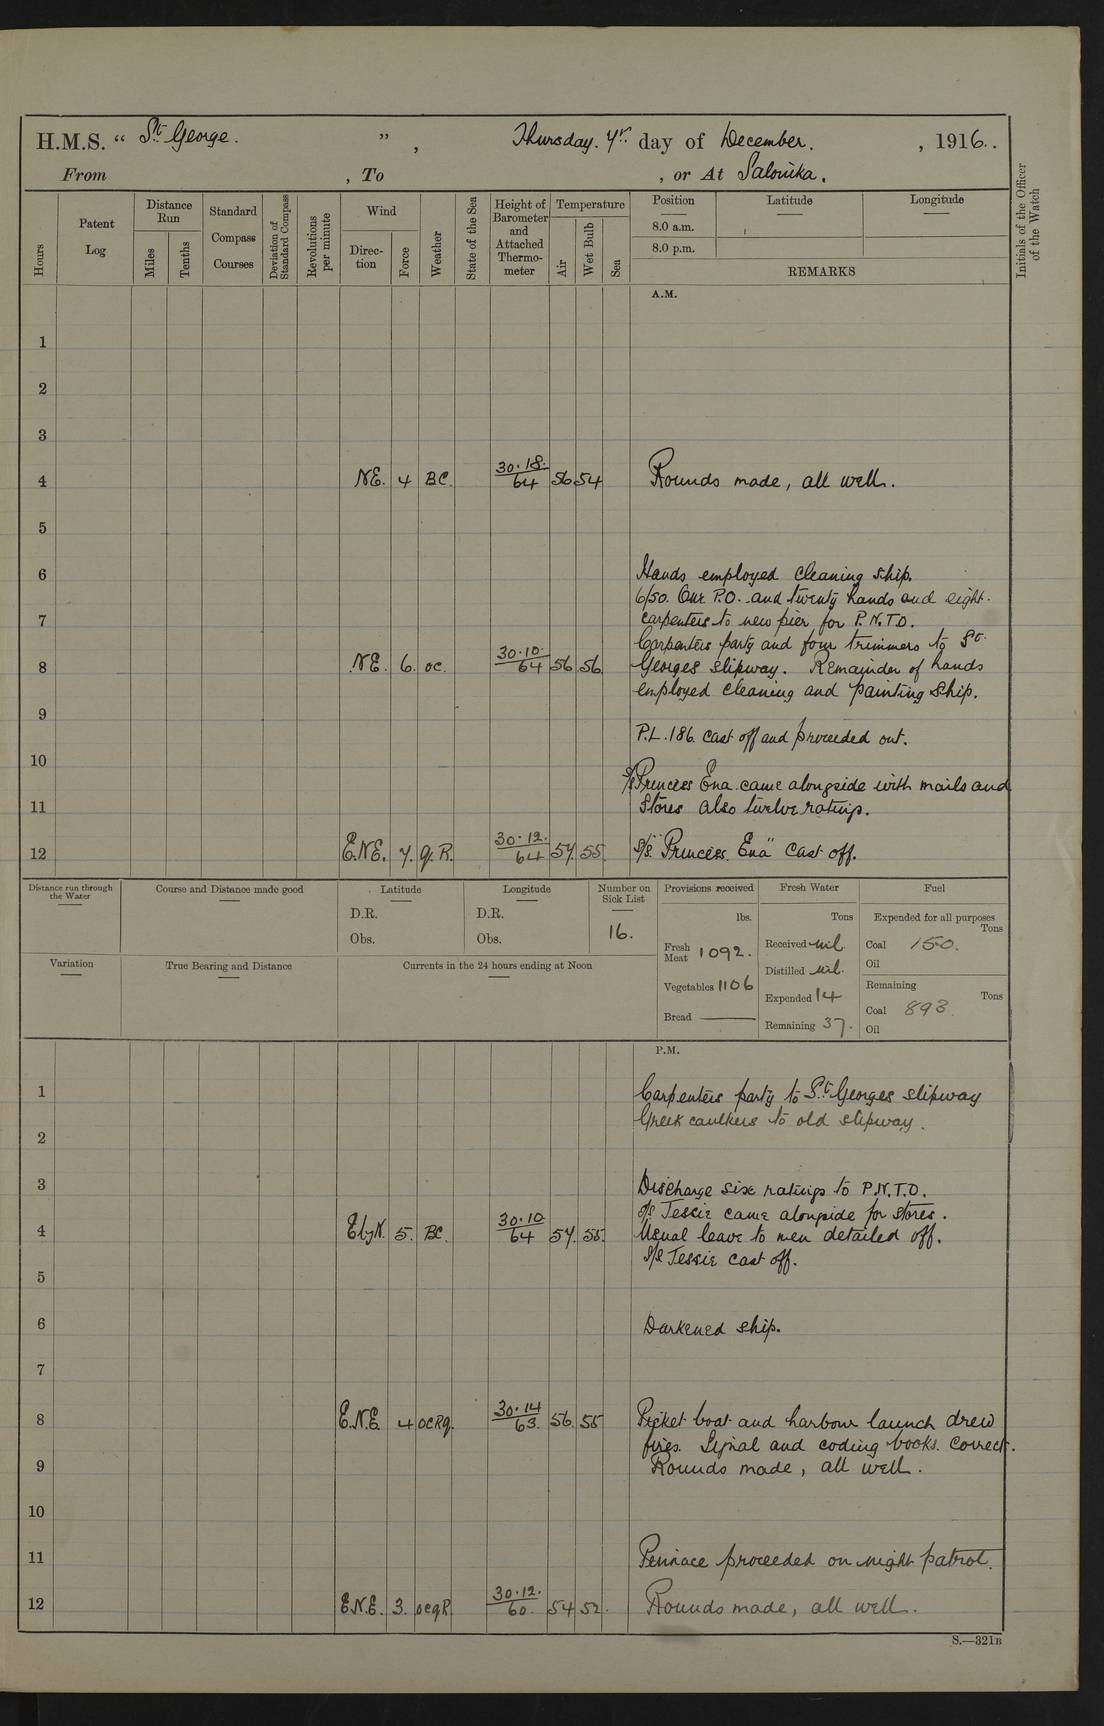 H.M.S. “ St. George. ” , Thursday. 7th day of December. , 1916.
From , To , or At Salonika.
Hours
Patent Log
Distance Run
Miles
Tenths
Standard Compass Courses
Deviation of Standard Compass
Revolutions per minute
Wind
Direction
Force
Weather
State of the Sea
Height of Barometer and Attached Thermometer
Temperature
Air
Wet Bulb
Sea
Position Latitude Longitude
8.0 a.m.
8.0 p.m.
REMARKS
Initials of the Officer of the Watch
A.M.
1
2
3
4 NE. 4 BC. 30.18. 64 56 54 Rounds made, all well.
5
6 Hands employed cleaning ship.
6/50. One P.O. and twenty hands and eight
7 carpenters to new pier for P.N.T.O.
Carpenters party and four trimmers to St.
8 NE. 6. oc. 30.10. 64 56 56. Georges slipway. Remainder of hands
employed cleaning and painting ship.
9
P.L. 186. cast off and proceeded out.
10
S/S Princess Ena came alongside with mails and
11 Stores also twelve ratings.
12 E.N.E. 7. q.R. 30.12. 64 57. 55. S/S. "Princess Ena" cast off.
Distance run through the Water
Course and Distance made good
Latitude
D.R.
Obs.
Longitude
D.R.
Obs.
Number on Sick List
16.
Provisions received
lbs.
Fresh Meat 1092.
Vegetables 1106
Bread
Fresh Water
Tons
Received nil
Distilled nil.
Expended 14
Remaining 37.
Fuel
Expended for all purposes
Tons
Coal 150.
Oil
Remaining
Tons
Coal 893.
Oil
Variation
True Bearing and Distance
Currents in the 24 hours ending at Noon
P.M.
1 Carpenters party to St. Georges slipway
Greek caulkers to old slipway.
2
3 Discharge six ratings to P.N.T.O.
S/S Tessie came alongside for stores.
4 EbyN. 5. BC. 30.10 64 57. 55. Usual leave to men detailed off.
S/S Tessie cast off.
5
6 Darkened ship.
7
8 E.N.E. 4 ocRq. 30.14 63. 56. 55 Picket boat and harbour launch drew
fires. Signal and coding books. correct.
9 Rounds made, all well.
10
11 Pinnace proceeded on night patrol.
12 E.N.E. 3. ocqR 30.12. 60. 54 52. Rounds made, all well.
S.—321B